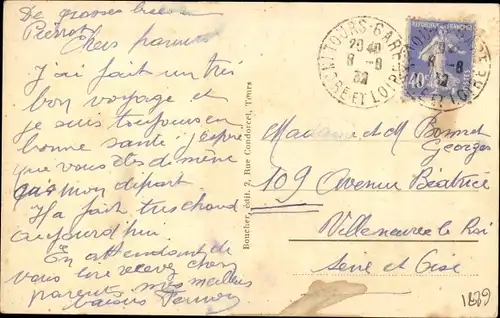 De grosses
Pierrot
Chers parents
J'ai fait un très
bon voyage et
je suis toujours en
bonne santé j'espère
que vous êtes de même
que mon départ
Il a fait très chaud
aujourd'hui
En attendant de
vous lire recevez chers
parents mes meilleurs
baisers
Boucher, édit. 2, Rue Condorcet, Tours
TOURS-GARE
20 40
8 -8
32
INDRE ET LOIRE
REPUBLIQUE FRANÇAISE
40
Madame et M Bonnet
Georges
109 Avenue Béatrice
Villeneuve le Roi
Seine et Oise
1689